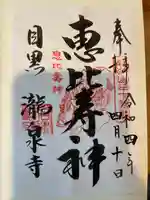 奉拝 令和四年
四月十日
恵比寿神
恵比寿神
目黒 瀧泉寺